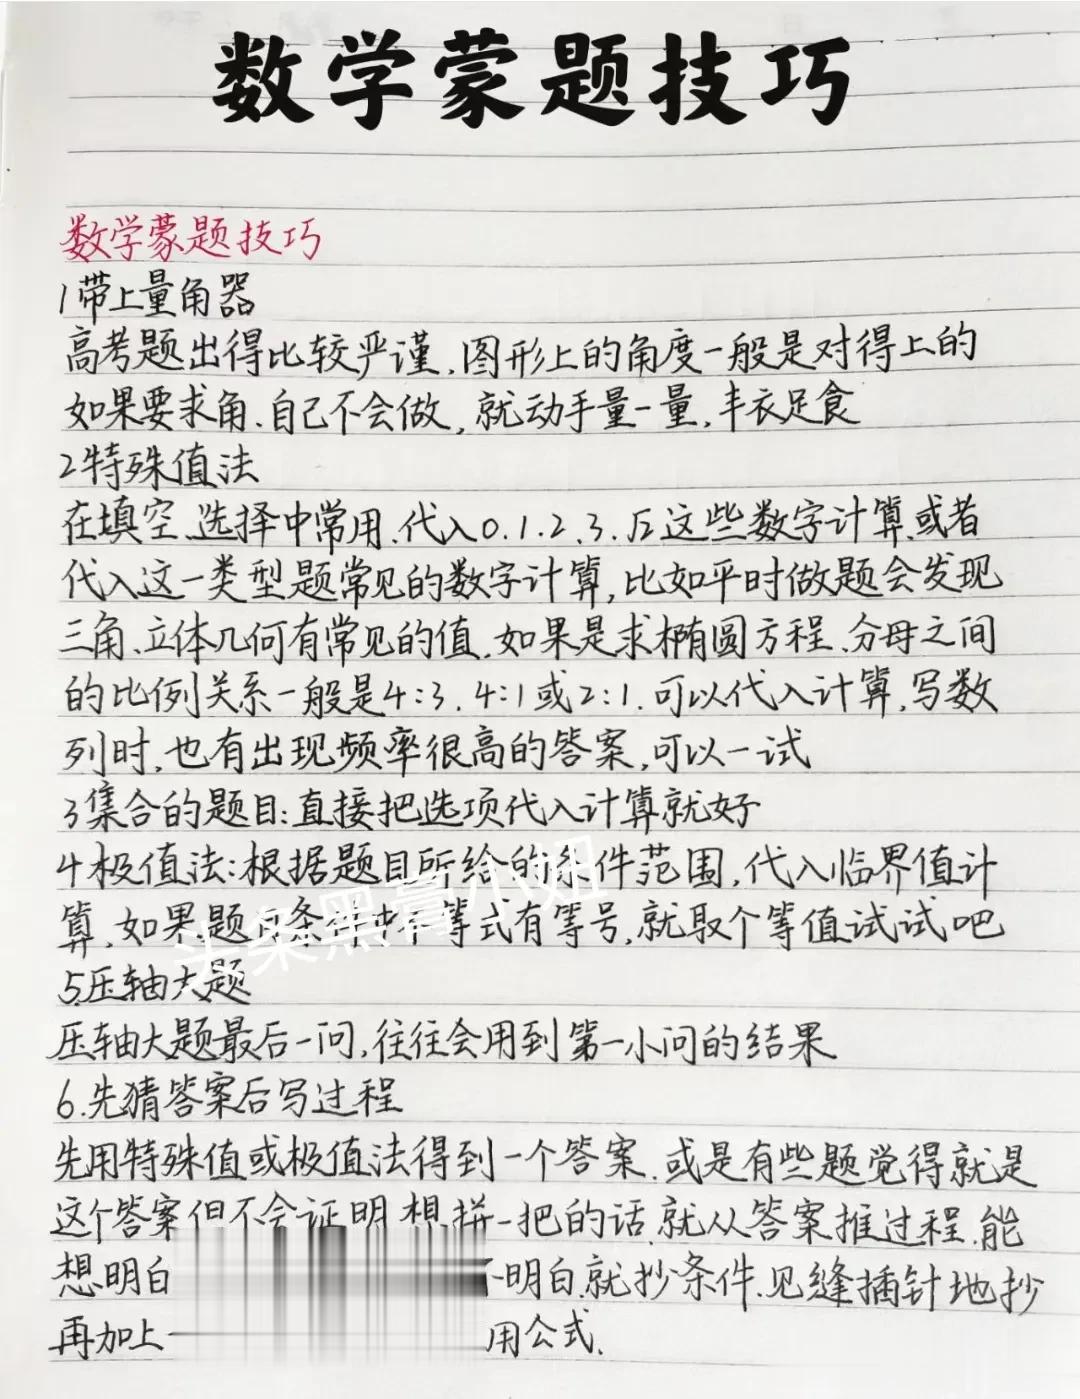 数学蒙题技巧
数学蒙题技巧
1带上量角器
高考题出得比较严谨.图形上的角度一般是对得上的
如果要求角.自己不会做,就动手量一量,丰衣足食
2特殊值法
在填空.选择中常用.代入0.1.2.3.后这些数字计算.或者
代入这一类型题常见的数字计算,比如平时做题会发现
三角、立体几何有常见的值.如果是求椭圆方程.分母之间
的比例关系一般是4:3.4:1或2:1.可以代入计算,写数
列时,也有出现频率很高的答案,可以一试
3集合的题目:直接把选项代入计算就好
4极值法:根据题目所给的条件范围,代入临界值计
算.如果题目条件中不等式有等号,就取个等值试试吧
头条黑膏小妞
5.压轴大题
压轴大题最后一问,往往会用到第一小问的结果
6.先猜答案后写过程
先用特殊值或极值法得到一个答案.或是有些题觉得就是
这个答案但不会证明.想拼一把的话.就从答案推过程.能
想明白 明白.就抄条件.见缝插针地抄
再加上一 用公式.